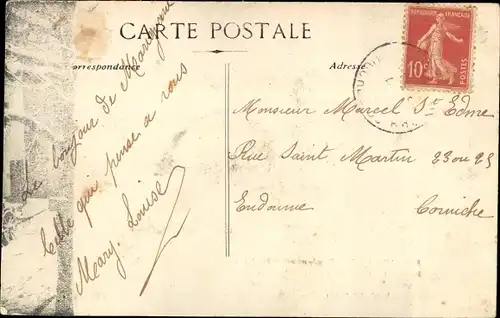 CARTE POSTALE
Correspondance
Adresse
REPUBLIQUE FRANÇAISE
10c
POSTES
Le bonjour de
Celle qui pense a vous
Mary. Louise
Monsieur Marcel St Edme
Rue Saint Martin 23 ou 25
Endoume Corniche